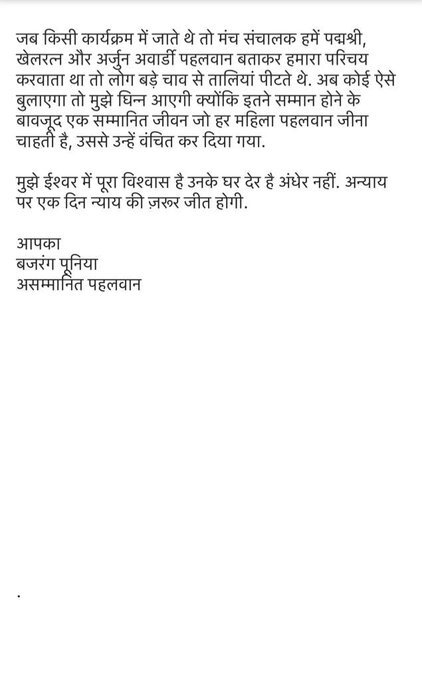 जब किसी कार्यक्रम में जाते थे तो मंच संचालक हमें पद्मश्री,
खेलरत्न और अर्जुन अवार्डी पहलवान बताकर हमारा परिचय
करवाता था तो लोग बड़े चाव से तालियां पीटते थे. अब कोई ऐसे
बुलाएगा तो मुझे घिन्न आएगी क्योंकि इतने सम्मान होने के
बावजूद एक सम्मानित जीवन जो हर महिला पहलवान जीना
चाहती है, उससे उन्हें वंचित कर दिया गया.
मुझे ईश्वर में पूरा विश्वास है उनके घर देर है अंधेर नहीं. अन्याय
पर एक दिन न्याय की ज़रूर जीत होगी.
आपका
बजरंग पूनिया
असम्मानित पहलवान
.